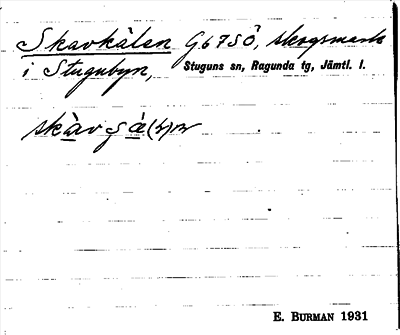 Skavkälen G6750, skogsmark
i Stugubyn, Stuguns sn, Ragunda tg, Jämtl. l.
E. BURMAN 1931